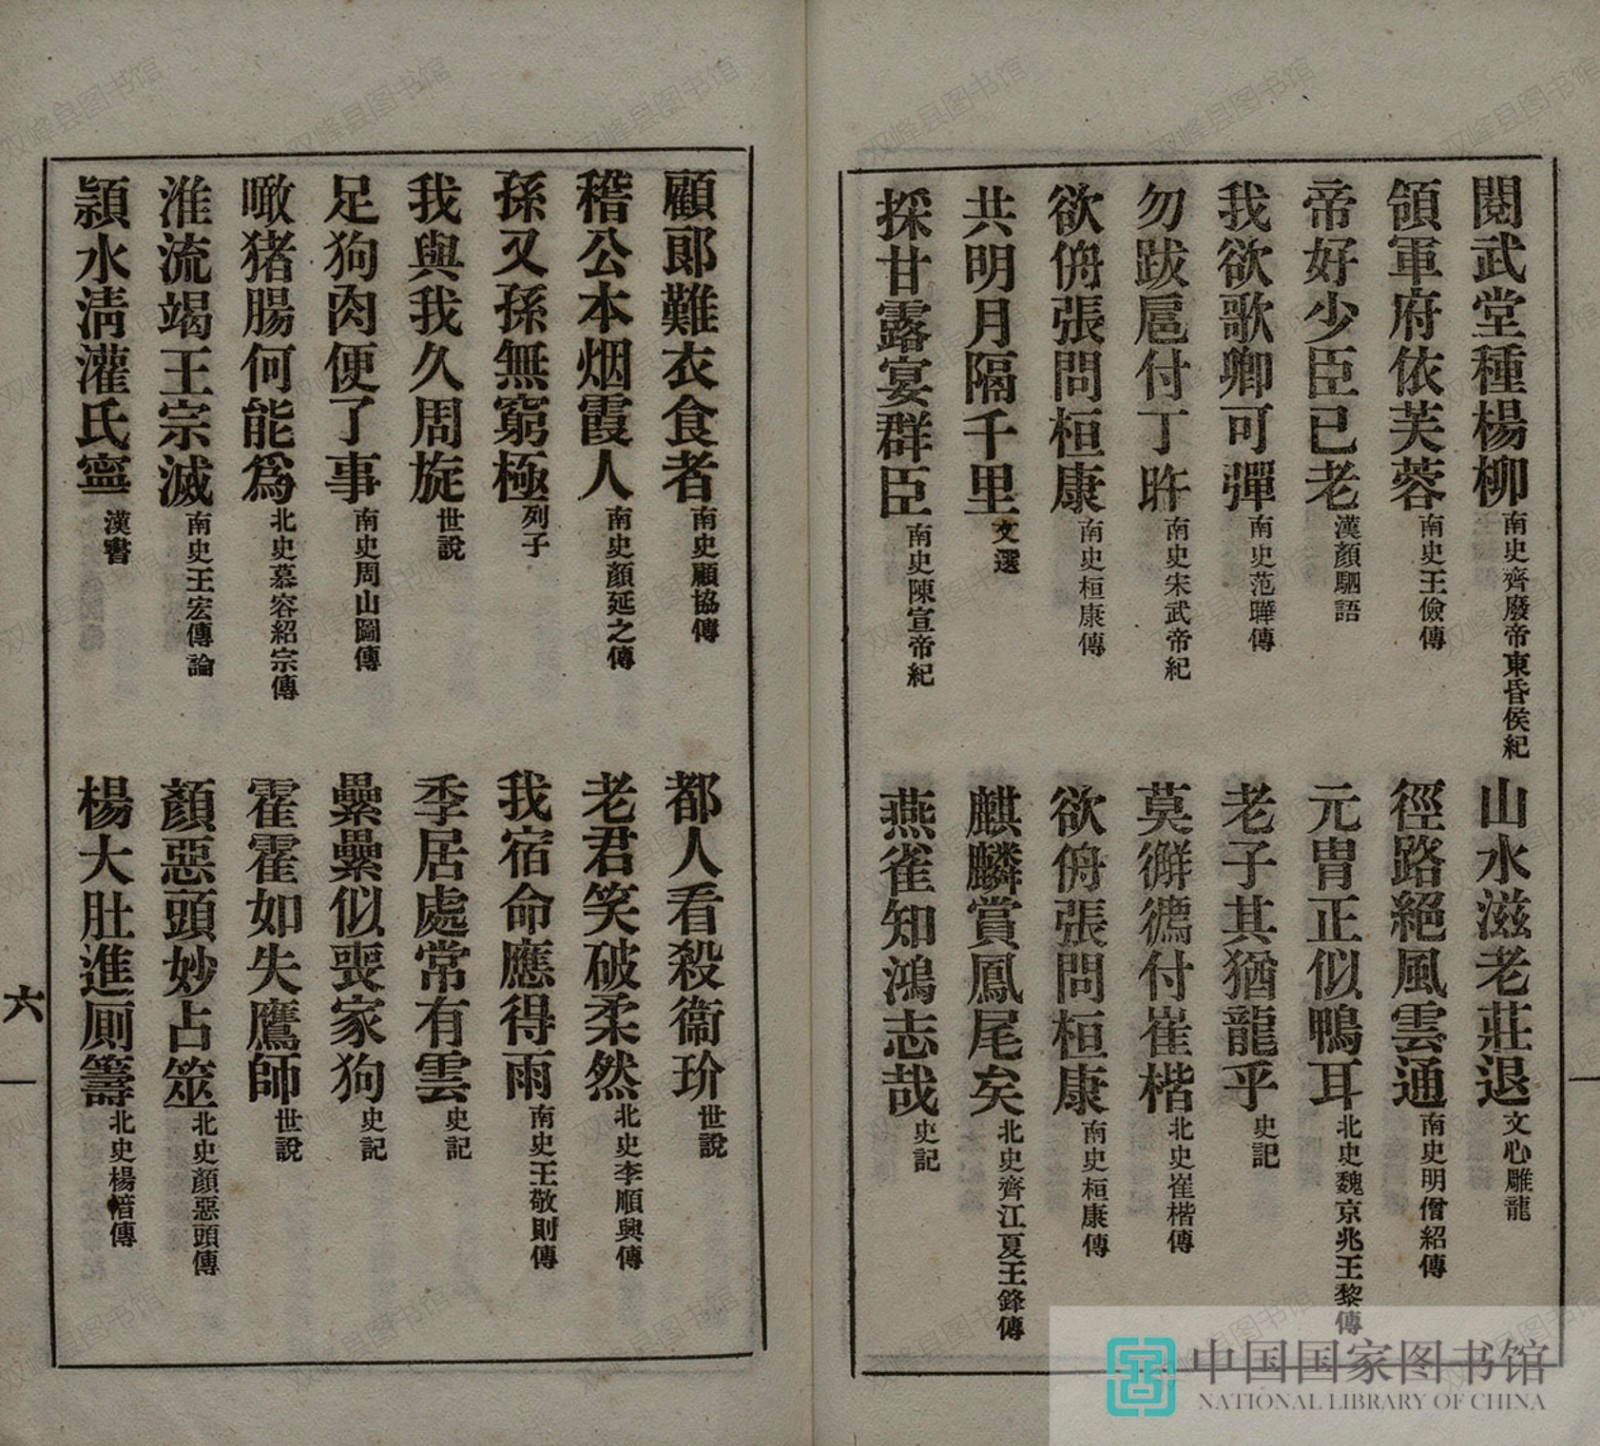 閱武堂種楊柳南史齊廢帝東昏侯紀 山水滋老莊退文心雕龍
領軍府依芙蓉南史王儉傳 徑路絕風雲通南史明僧紹傳
帝好少臣已老漢顏駟語 元胄正似鴨耳北史魏京兆王黎傳
我欲歌卿可彈南史范曄傳 老子其猶龍乎史記
勿跋扈付丁旿南史宋武帝紀 莫㣰㣸付崔楷北史崔楷傳
欲侜張問桓康南史桓康傳 欲侜張問桓康南史桓康傳
共明月隔千里文選 麒麟賞鳳尾矣北史齊江夏王鋒傳
採甘露宴群臣南史陳宣帝紀 燕雀知鴻志哉史記
顧郞難衣食者南史顧協傳 都人看殺衞玠世說
稽公本烟霞人南史顏延之傳 老君笑破柔然北史李順興傳
孫又孫無窮極列子 我宿命應得雨南史王敬則傳
我與我久周旋世說 季居處常有雲史記
足狗肉便了事南史周山圖傳 纍纍似喪家狗史記
噉猪腸何能爲北史慕容紹宗傳 霍霍如失鷹師世說
淮流竭王宗滅南史王宏傳論 顏惡頭妙占筮北史顏惡頭傳
潁水淸灌氏寧漢書 楊大肚進厠籌北史楊愔傳
六
双峰县图书馆
中国国家图书馆
NATIONAL LIBRARY OF CHINA